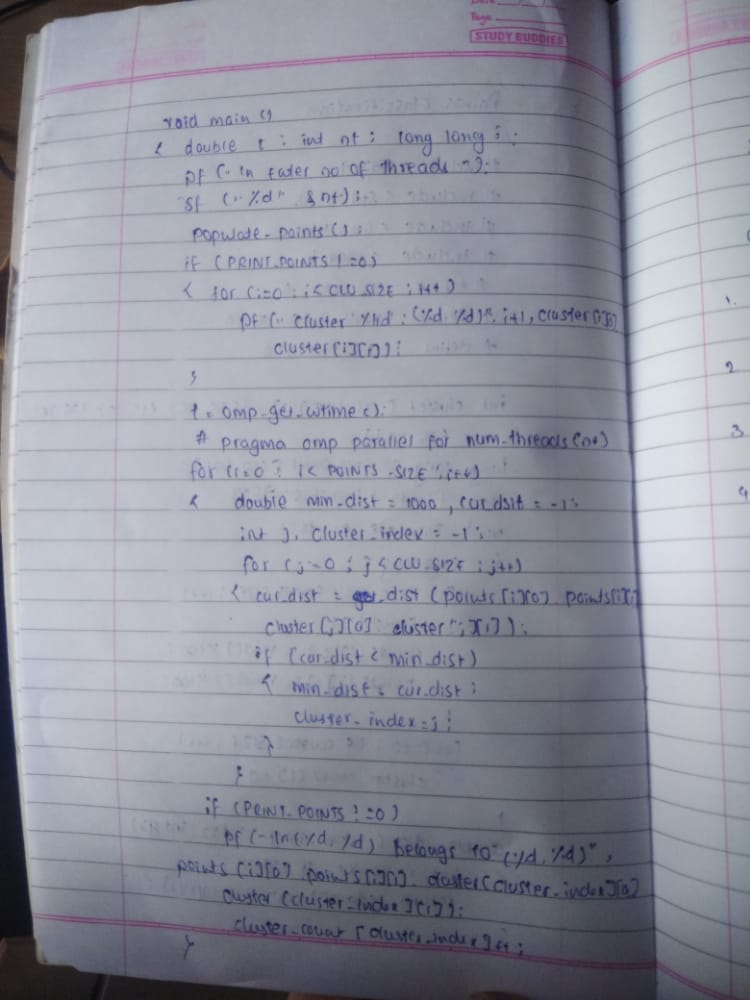 Page
STUDY BUDDIES
void main ()
{ double t ; int nt ; long long i ;
pf (" \n Enter no of threads ");
sf ("%d" &nt) ;
populate_points () ;
if (PRINT_POINTS != 0)
{ for (i=0 ; i< CLU_SIZE ; i++)
pf (" cluster %lld : (%d, %d)", i+1, cluster[i][0]
cluster[i][1]) ;
}
t = omp_get_wtime ();
# pragma omp parallel for num_threads(nt)
for (i=0 ; i< POINTS_SIZE ; i++)
{ double min_dist = 1000 , cur_dsit = -1 ;
int j, cluster_index = -1 ;
for (j=0 ; j < CLU_SIZE ; j++)
{ cur_dist = get_dist (points[i][0] points[i][1]
cluster[j][0] cluster[j][1]) ;
if (cur_dist < min_dist)
{ min_dist = cur_dist ;
cluster_index = j ;
}
}
if (PRINT_POINTS != 0)
pf ("\n (%d, %d) belongs to (%d, %d)" ,
points [i][0] points[i][1] cluster[cluster_index][0]
cluster [cluster_index][1]) ;
cluster_count [cluster_index]++ ;
}
1.
2
3
4